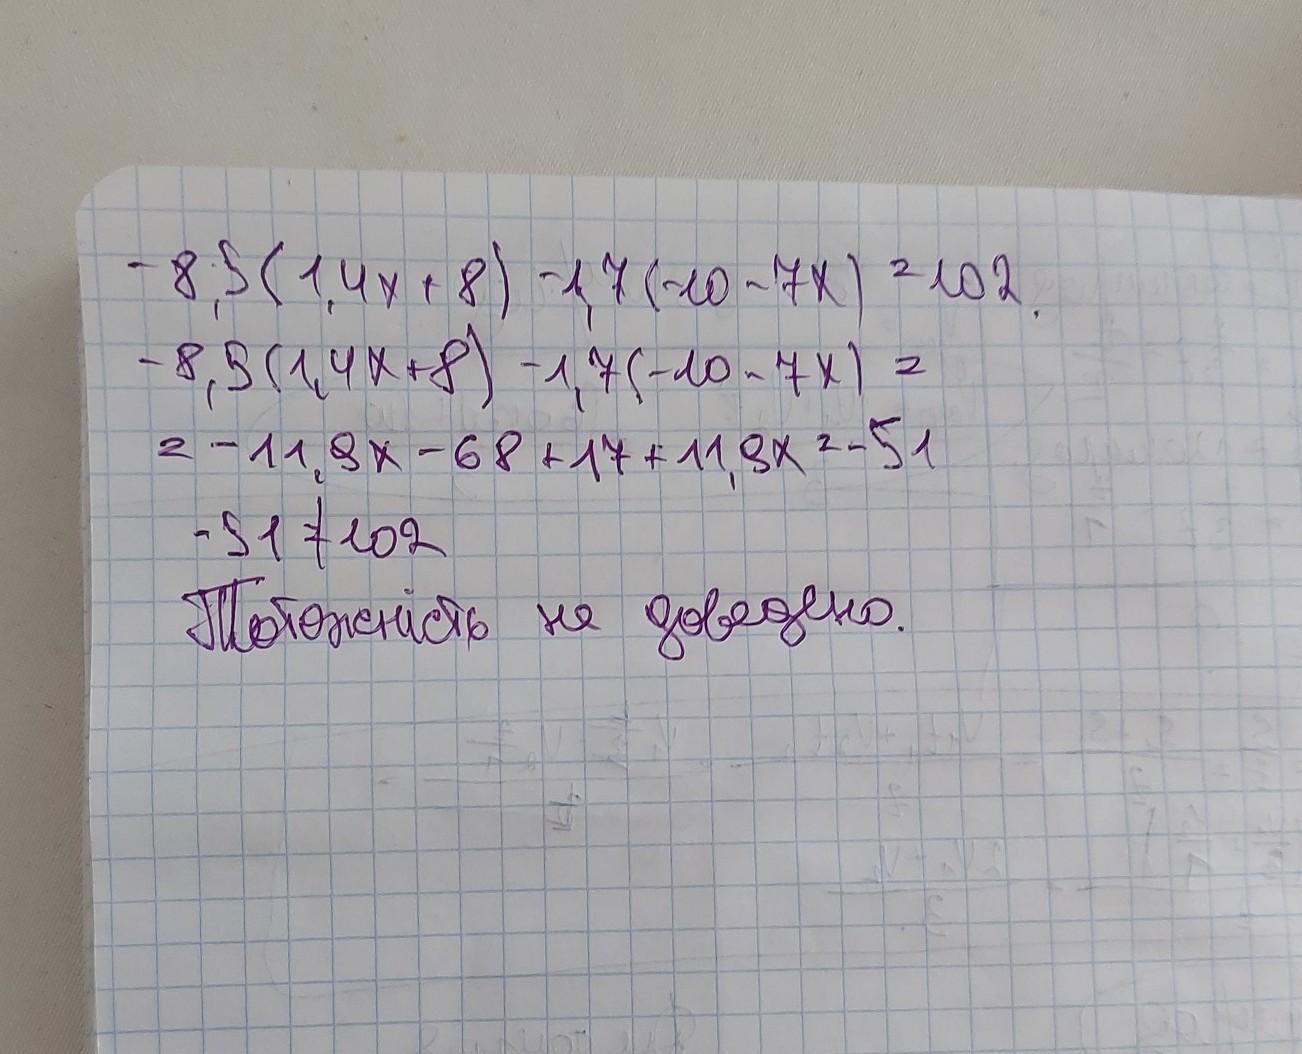 -8,5(1,4x+8) -1,7(-10-7x) =102.
-8,5(1,4x+8) -1,7(-10-7x) =
= -11,9x -68 +17 +11,9x = -51
-51 ≠ 102
Тотожність не доведено.